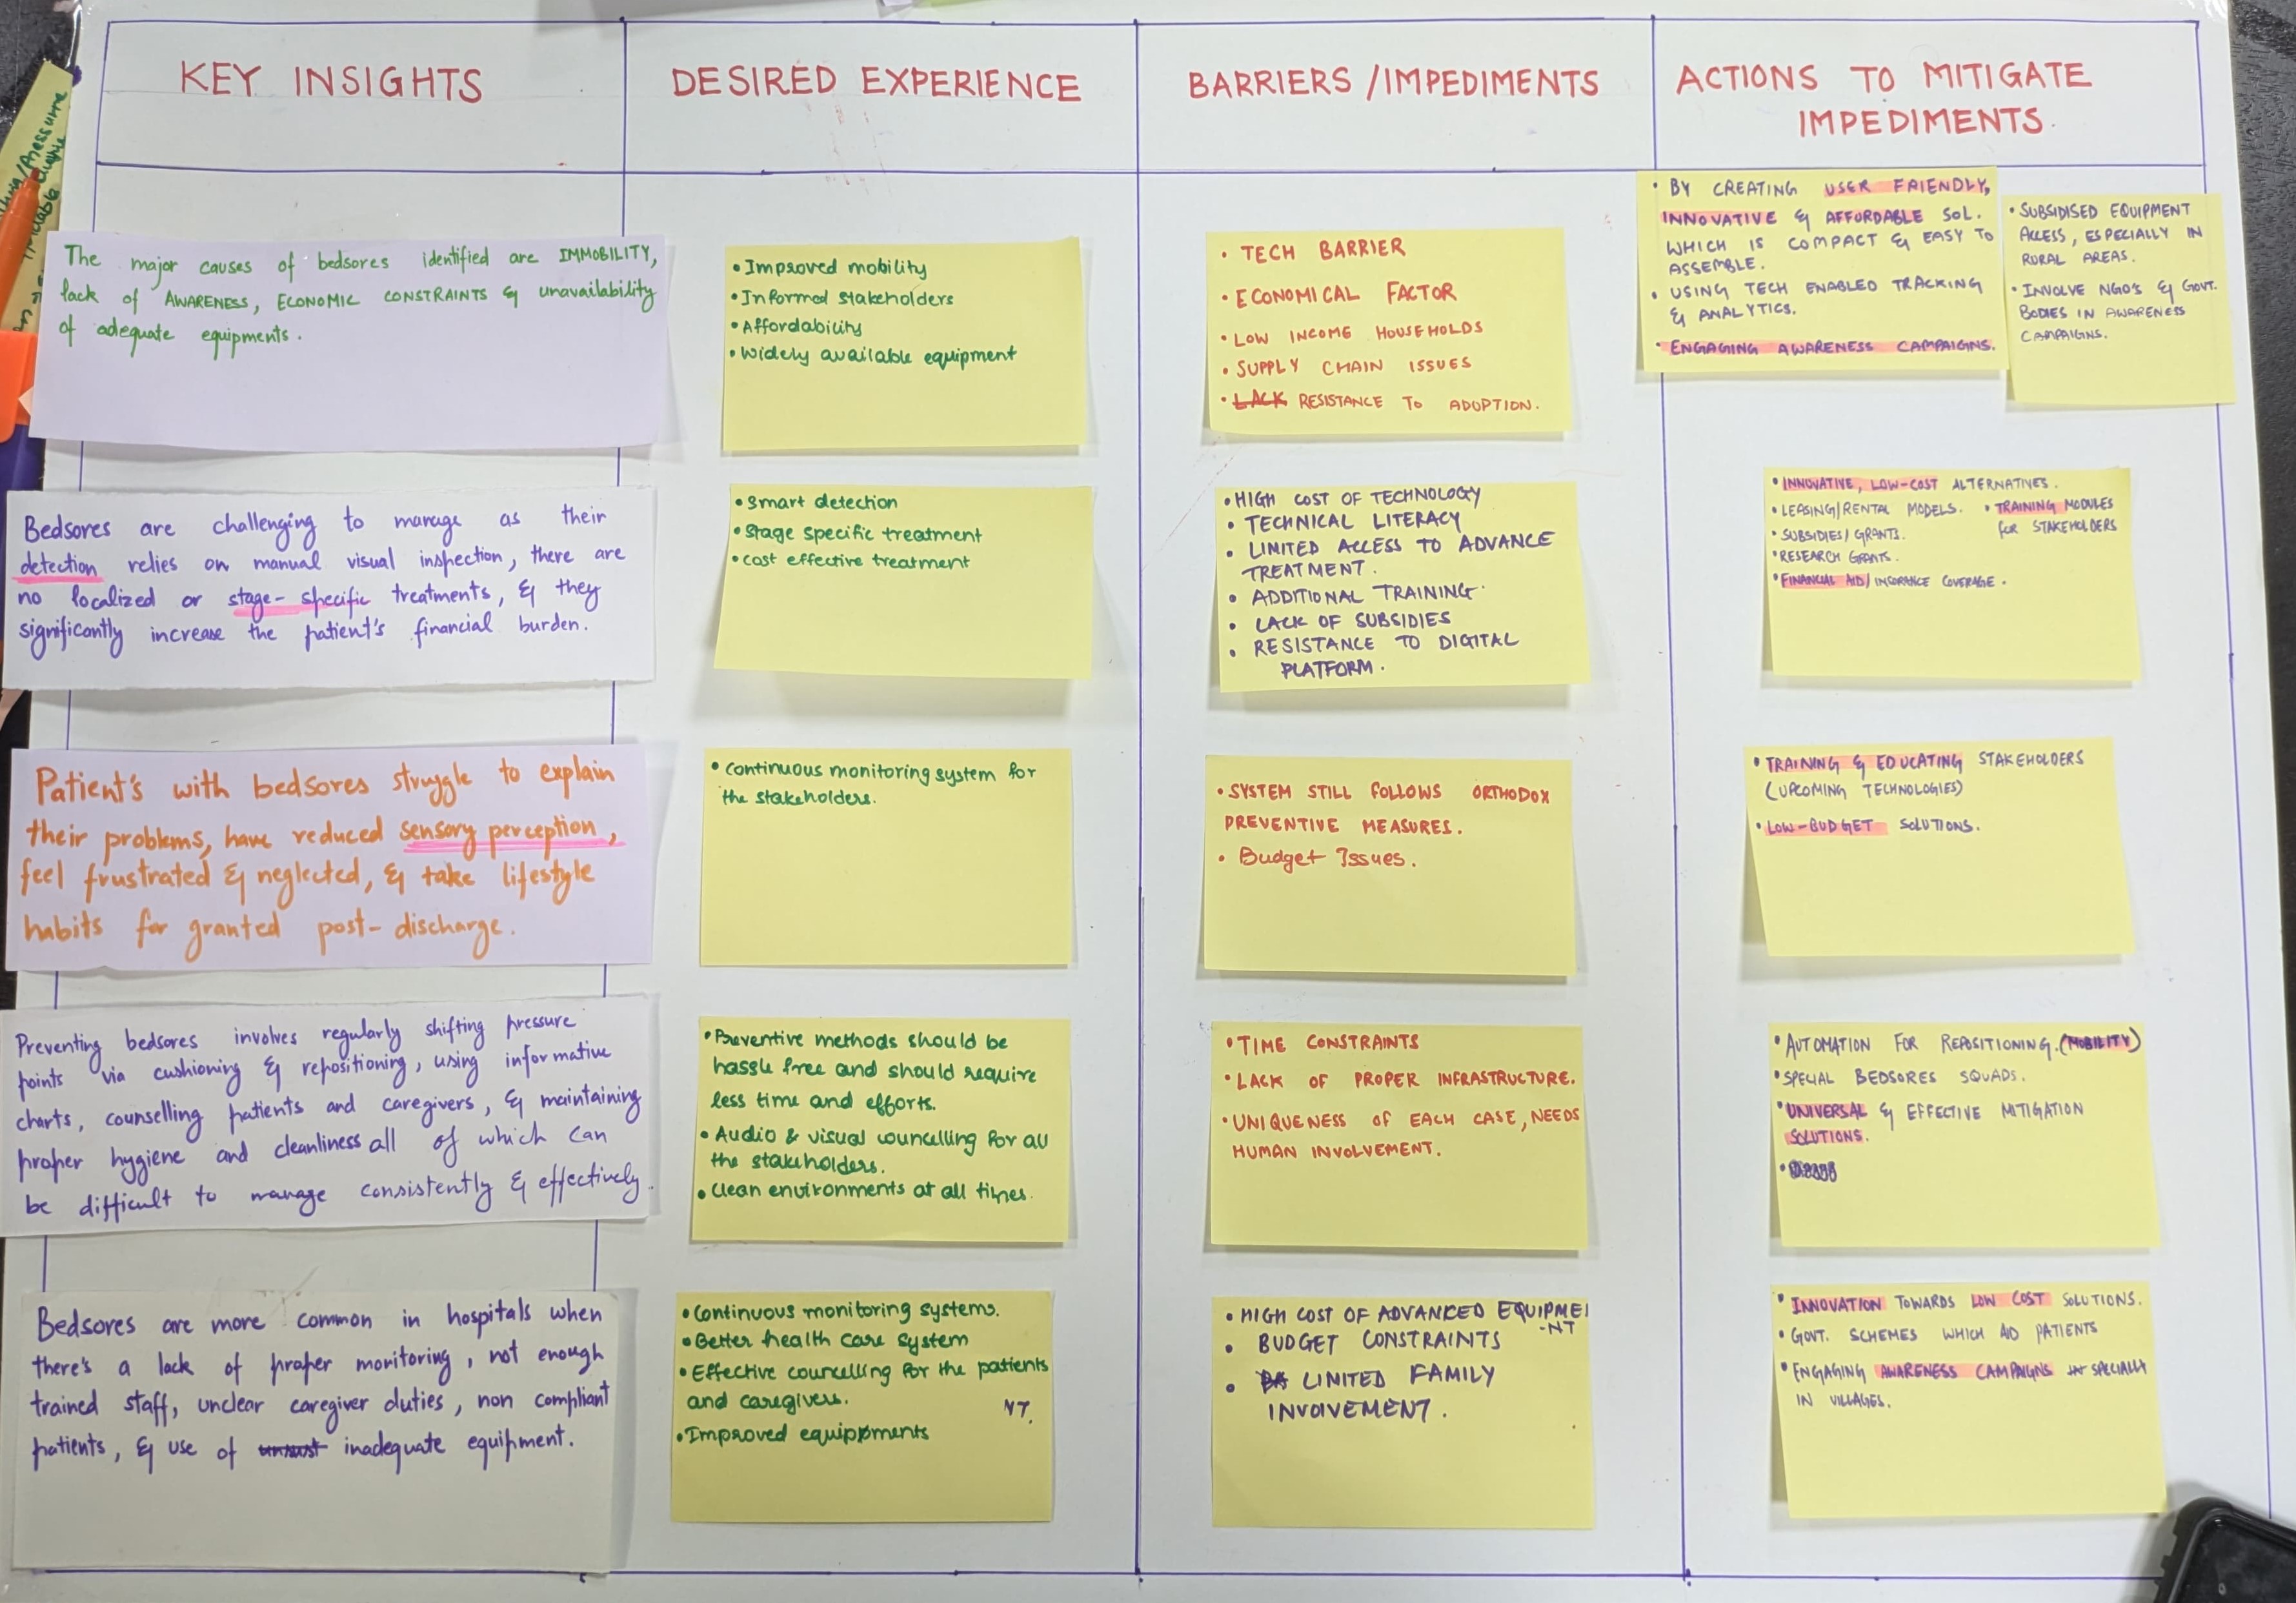 KEY INSIGHTS
DESIRED EXPERIENCE
BARRIERS /IMPEDIMENTS
ACTIONS TO MITIGATE
IMPEDIMENTS.
The major causes of bedsores identified are IMMOBILITY,
lack of AWARENESS, ECONOMIC CONSTRAINTS & unavailability
of adequate equipments.
• Improved mobility
• Informed stakeholders
• Affordability
• Widely available equipment
• TECH BARRIER
• ECONOMICAL FACTOR
• LOW INCOME HOUSEHOLDS
• SUPPLY CHAIN ISSUES
• LACK RESISTANCE TO ADOPTION.
• BY CREATING USER FRIENDLY,
INNOVATIVE & AFFORDABLE SOL.
WHICH IS COMPACT & EASY TO
ASSEMBLE.
• USING TECH ENABLED TRACKING
& ANALYTICS.
• ENGAGING AWARENESS CAMPAIGNS.
• SUBSIDISED EQUIPMENT
ACCESS, ESPECIALLY IN
RURAL AREAS.
• INVOLVE NGO'S & GOVT.
BODIES IN AWARENESS
CAMPAIGNS.
Bedsores are challenging to manage as their
detection relies on manual visual inspection, there are
no localized or stage-specific treatments, & they
significantly increase the patient's financial burden.
• Smart detection
• Stage specific treatment
• Cost effective treatment
• HIGH COST OF TECHNOLOGY
• TECHNICAL LITERACY
• LIMITED ACCESS TO ADVANCE
TREATMENT.
• ADDITIONAL TRAINING.
• LACK OF SUBSIDIES
• RESISTANCE TO DIGITAL
PLATFORM.
• INNOVATIVE, LOW-COST ALTERNATIVES.
• LEASING/RENTAL MODELS. • TRAINING MODULES
for STAKEHOLDERS
• SUBSIDIES/GRANTS.
• RESEARCH GRANTS.
• FINANCIAL AID/INSURANCE COVERAGE.
Patient's with bedsores struggle to explain
their problems, have reduced sensory perception,
feel frustrated & neglected, & take lifestyle
habits for granted post-discharge.
• Continuous monitoring system for
the stakeholders.
• SYSTEM STILL FOLLOWS ORTHODOX
PREVENTIVE MEASURES.
• Budget Issues.
• TRAINING & EDUCATING STAKEHOLDERS
(UPCOMING TECHNOLOGIES)
• LOW-BUDGET SOLUTIONS.
Preventing bedsores involves regularly shifting pressure
points via cushioning & repositioning, using informative
charts, counselling patients and caregivers, & maintaining
proper hygiene and cleanliness all of which can
be difficult to manage consistently & effectively.
• Preventive methods should be
hassle free and should require
less time and efforts.
• Audio & visual councelling for all
the stakeholders.
• Clean environments at all times.
• TIME CONSTRAINTS
• LACK OF PROPER INFRASTRUCTURE.
• UNIQUENESS OF EACH CASE, NEEDS
HUMAN INVOLVEMENT.
• AUTOMATION FOR REPOSITIONING. (MOBILITY)
• SPECIAL BEDSORES SQUADS.
• UNIVERSAL & EFFECTIVE MITIGATION
SOLUTIONS.
Bedsores are more common in hospitals when
there's a lack of proper monitoring, not enough
trained staff, unclear caregiver duties, non compliant
patients, & use of inadequate equipment.
• Continuous monitoring systems.
• Better health care system
• Effective councelling for the patients
and caregivers.
NT.
• Improved equippments
• HIGH COST OF ADVANCED EQUIPME
-NT
• BUDGET CONSTRAINTS
• LIMITED FAMILY
INVOLVEMENT.
• INNOVATION TOWARDS LOW COST SOLUTIONS.
• GOVT. SCHEMES WHICH AID PATIENTS
• ENGAGING AWARENESS CAMPAIGNS SPECIALLY
IN VILLAGES.